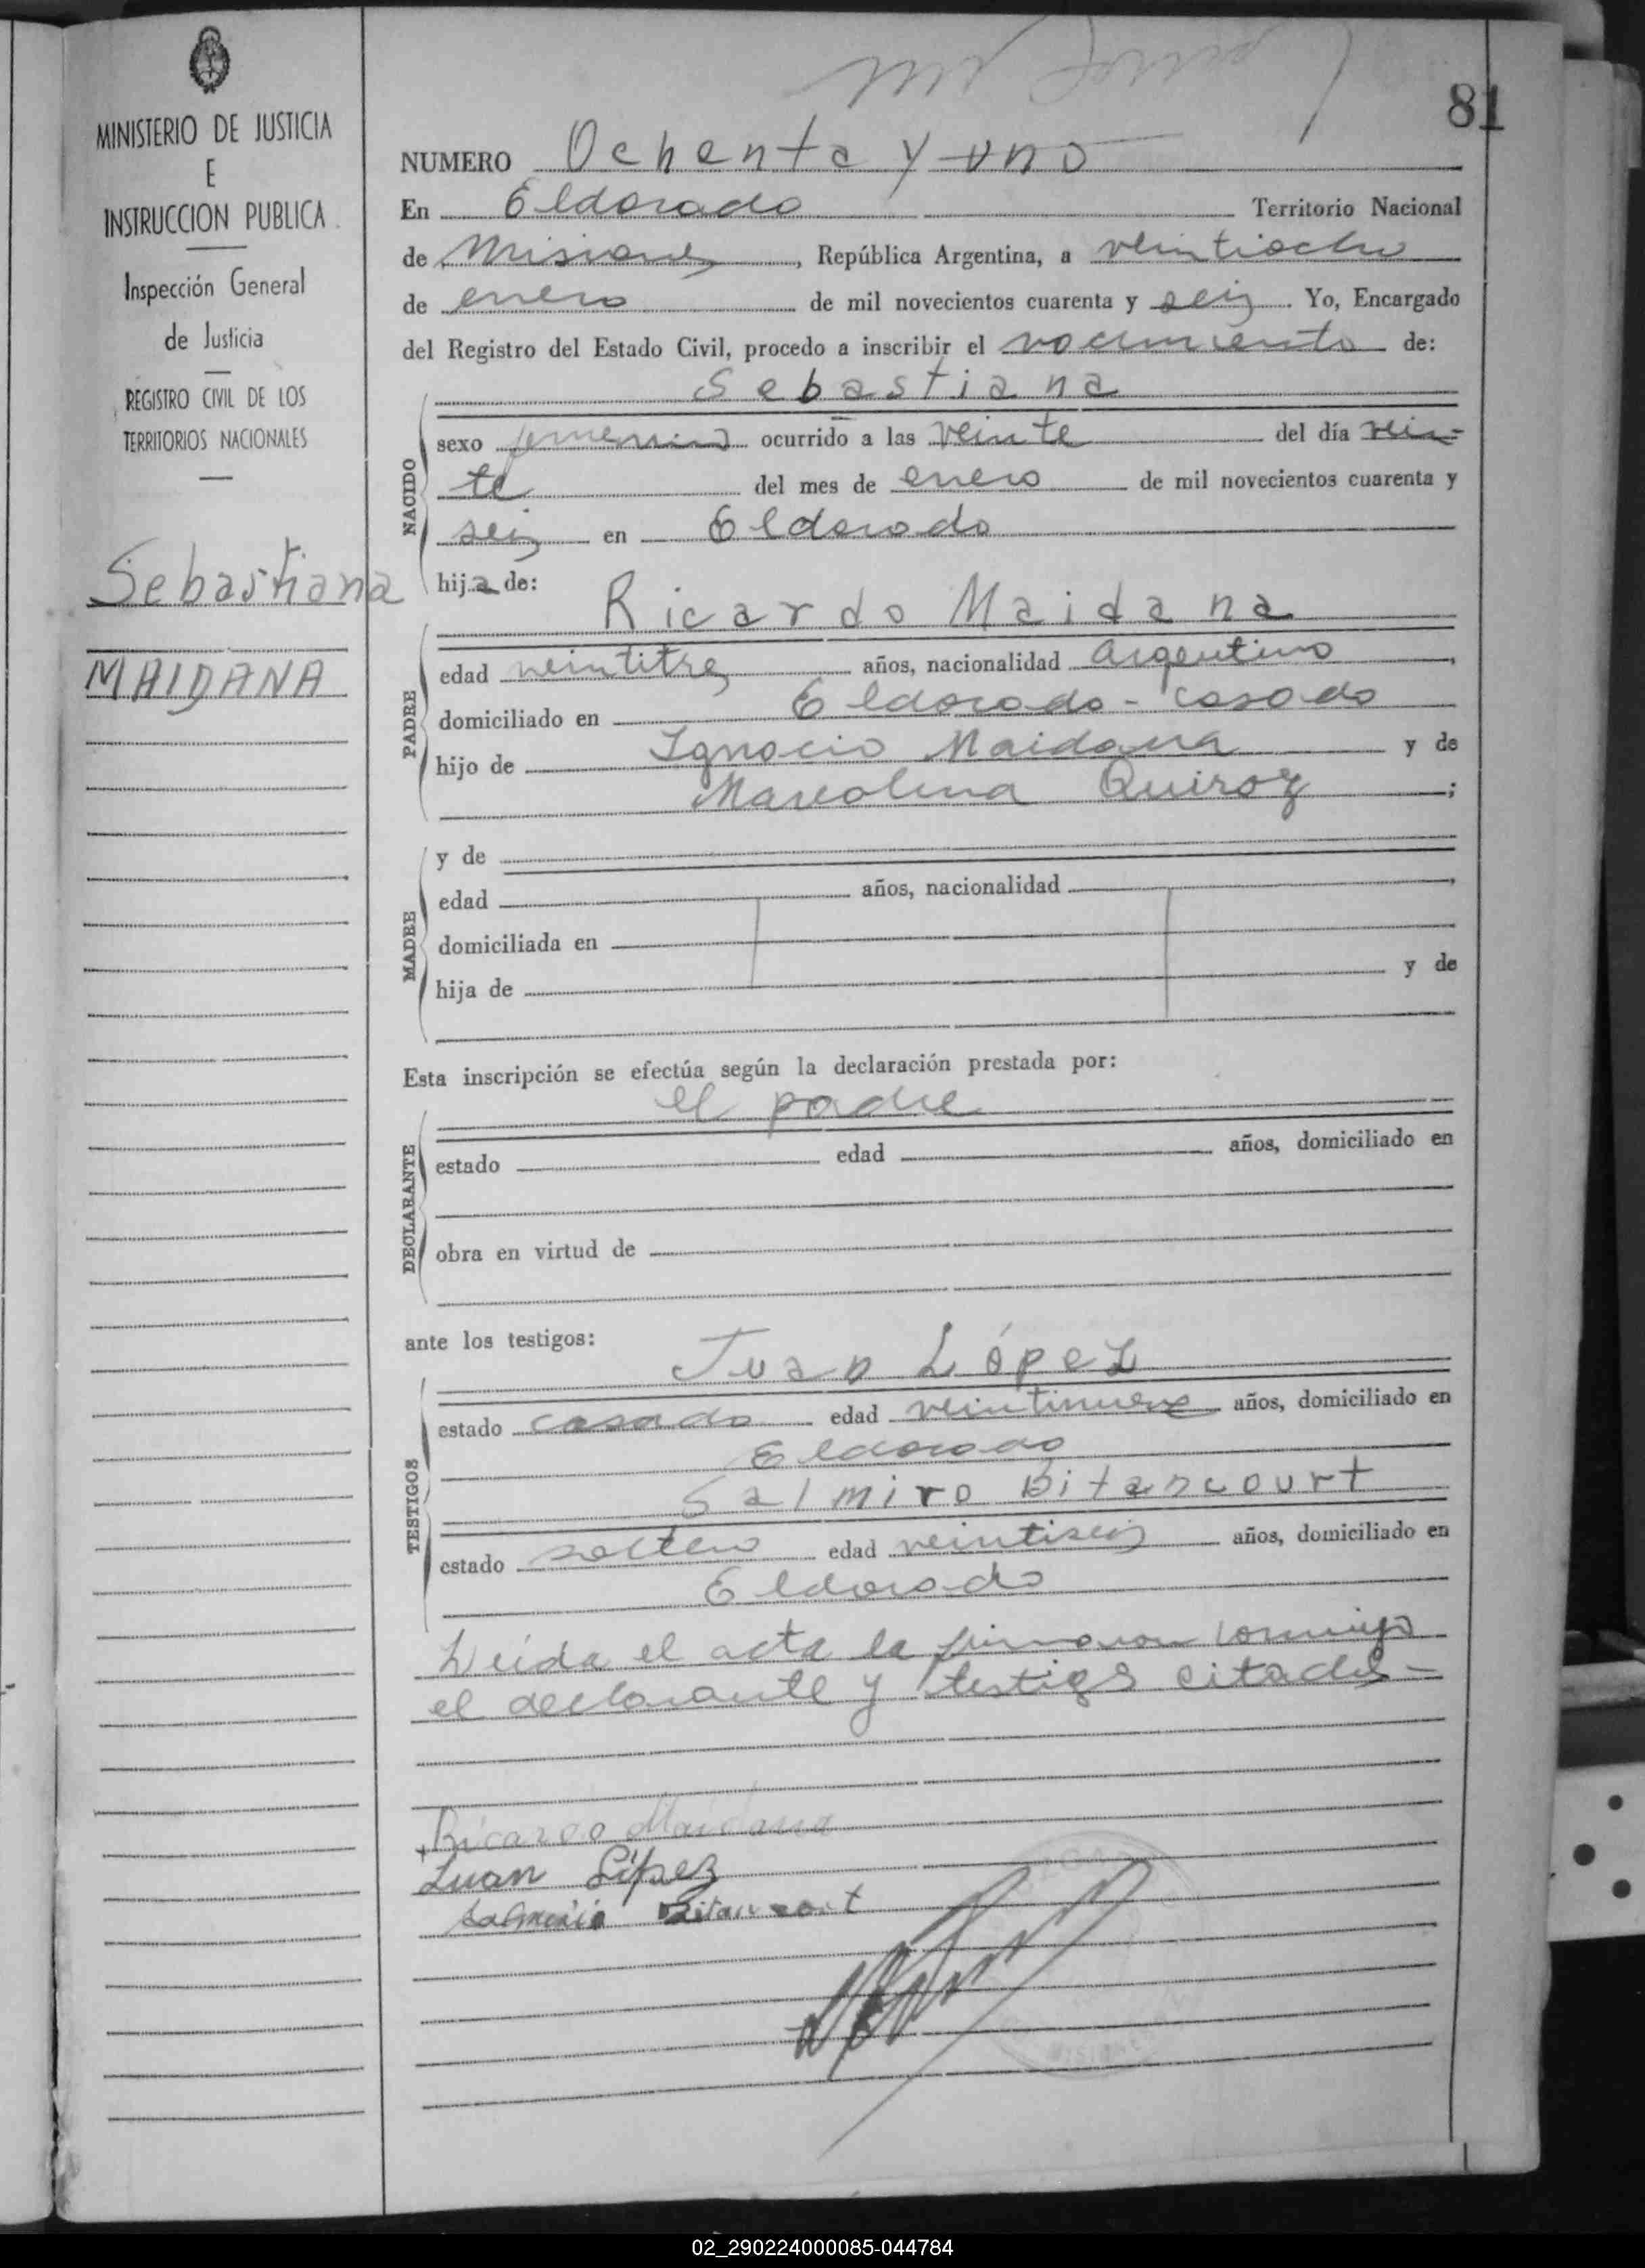 MINISTERIO DE JUSTICIA
E
INSTRUCCION PUBLICA
Inspección General
de Justicia
REGISTRO CIVIL DE LOS
TERRITORIOS NACIONALES
Sebastiana
MAIDANA
81
NUMERO Ochenta y uno
En Eldorado Territorio Nacional
de Misiones, República Argentina, a veintiocho
de enero de mil novecientos cuarenta y seis. Yo, Encargado
del Registro del Estado Civil, procedo a inscribir el nacimiento de:
Sebastiana
NACIDO
sexo femenino ocurrido a las veinte del día vein-
te del mes de enero de mil novecientos cuarenta y
seis en Eldorado
hija de:
Ricardo Maidana
PADRE
edad veintitres años, nacionalidad Argentino,
domiciliado en Eldorado - casado
hijo de Ignacio Maidana y de
Marcolina Quiroz;
MADRE
y de
edad años, nacionalidad,
domiciliada en
hija de y de
Esta inscripción se efectúa según la declaración prestada por:
el padre
DECLARANTE
estado edad años, domiciliado en
obra en virtud de
ante los testigos:
Juan López
TESTIGOS
estado casado edad veintinueve años, domiciliado en
Eldorado
Salmiro Bitancourt
estado soltero edad veintiseis años, domiciliado en
Eldorado
Leída el acta la firmaron conmigo
el declarante y testigos citados -
Ricardo Maidana
Juan López
02_290224000085-044784